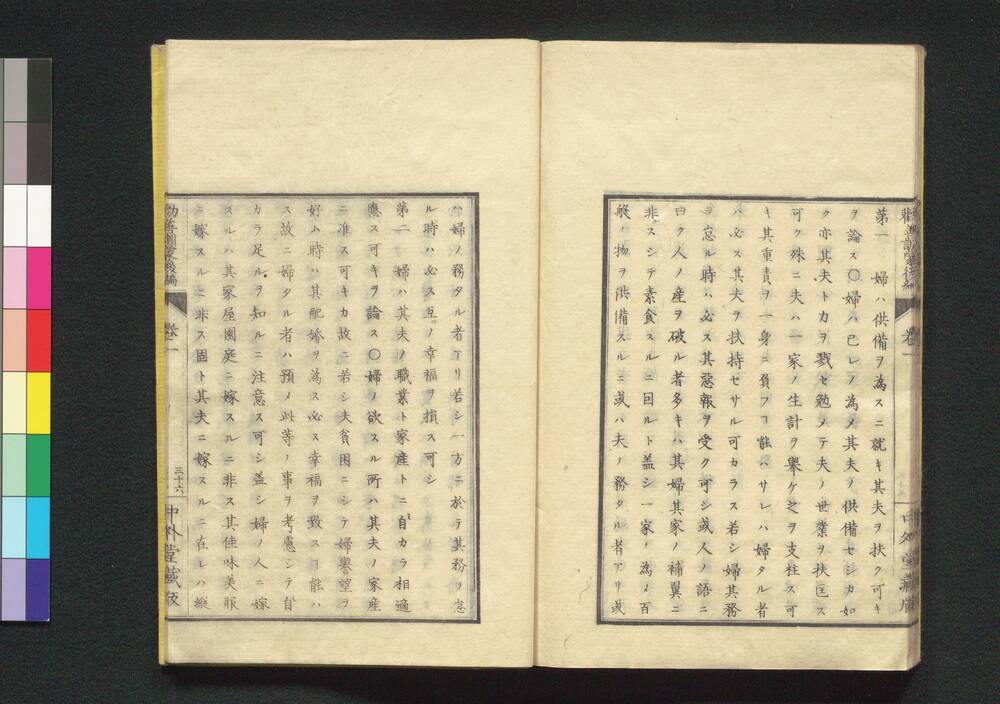 勸善訓蒙後編
卷一
中外堂藏版
第一　婦ハ供備ヲ為スニ就キ其夫ヲ扶ク可キ
ヲ論ス〇婦ハ己レノ為メ其夫ノ供備セシカ如
ク亦其夫ト力ヲ戮セ勉メテ夫ノ世業ヲ扶匡ス
可ク殊ニ夫ハ一家ノ生計ヲ舉ケ之ヲ支柱ス可
キ其重責ヲ一身ニ負フヿ能ハサレハ婦タル者
ハ必ス其夫ヲ扶持セサル可カラス若シ婦其務
ヲ忘ル時ハ必ス其惡報ヲ受ク可シ或人ノ語ニ
曰ク人ノ産ヲ破ル者多キハ其婦其家ノ補翼ニ
非スシテ素食スルニ因ルト盖シ一家ノ為メ百
般ノ物ヲ供備スルニ或ハ夫ノ務タル者アリ或
ハ婦ノ務タル者アリ若シ一方ニ於テ其務ヲ怠
ル時ハ必ス互ノ幸福ヲ損ス可シ
第二　婦ハ其夫ノ職業ト家産トニ自カラ相適
應ス可キヲ論ス〇婦ノ欲スル所ハ其夫ノ家産
ニ准ス可キカ故ニ若シ夫貧困ニシテ婦奢望ヲ
好ム時ハ其配婚ヲ為ス必ス幸福ヲ致スヿ能ハ
ス故ニ婦タル者ハ預メ此等ノ事ヲ考慮シテ自
カラ足ルヲ知ルニ注意ス可シ盖シ婦ノ人ニ嫁
スルハ其家屋園庭ニ嫁スルニ非ス其佳味美服
ニ嫁スルニ非ス固ト其夫ニ嫁スルニ在レハ縱
勸善訓蒙後編
卷一
三十六
中外堂藏版